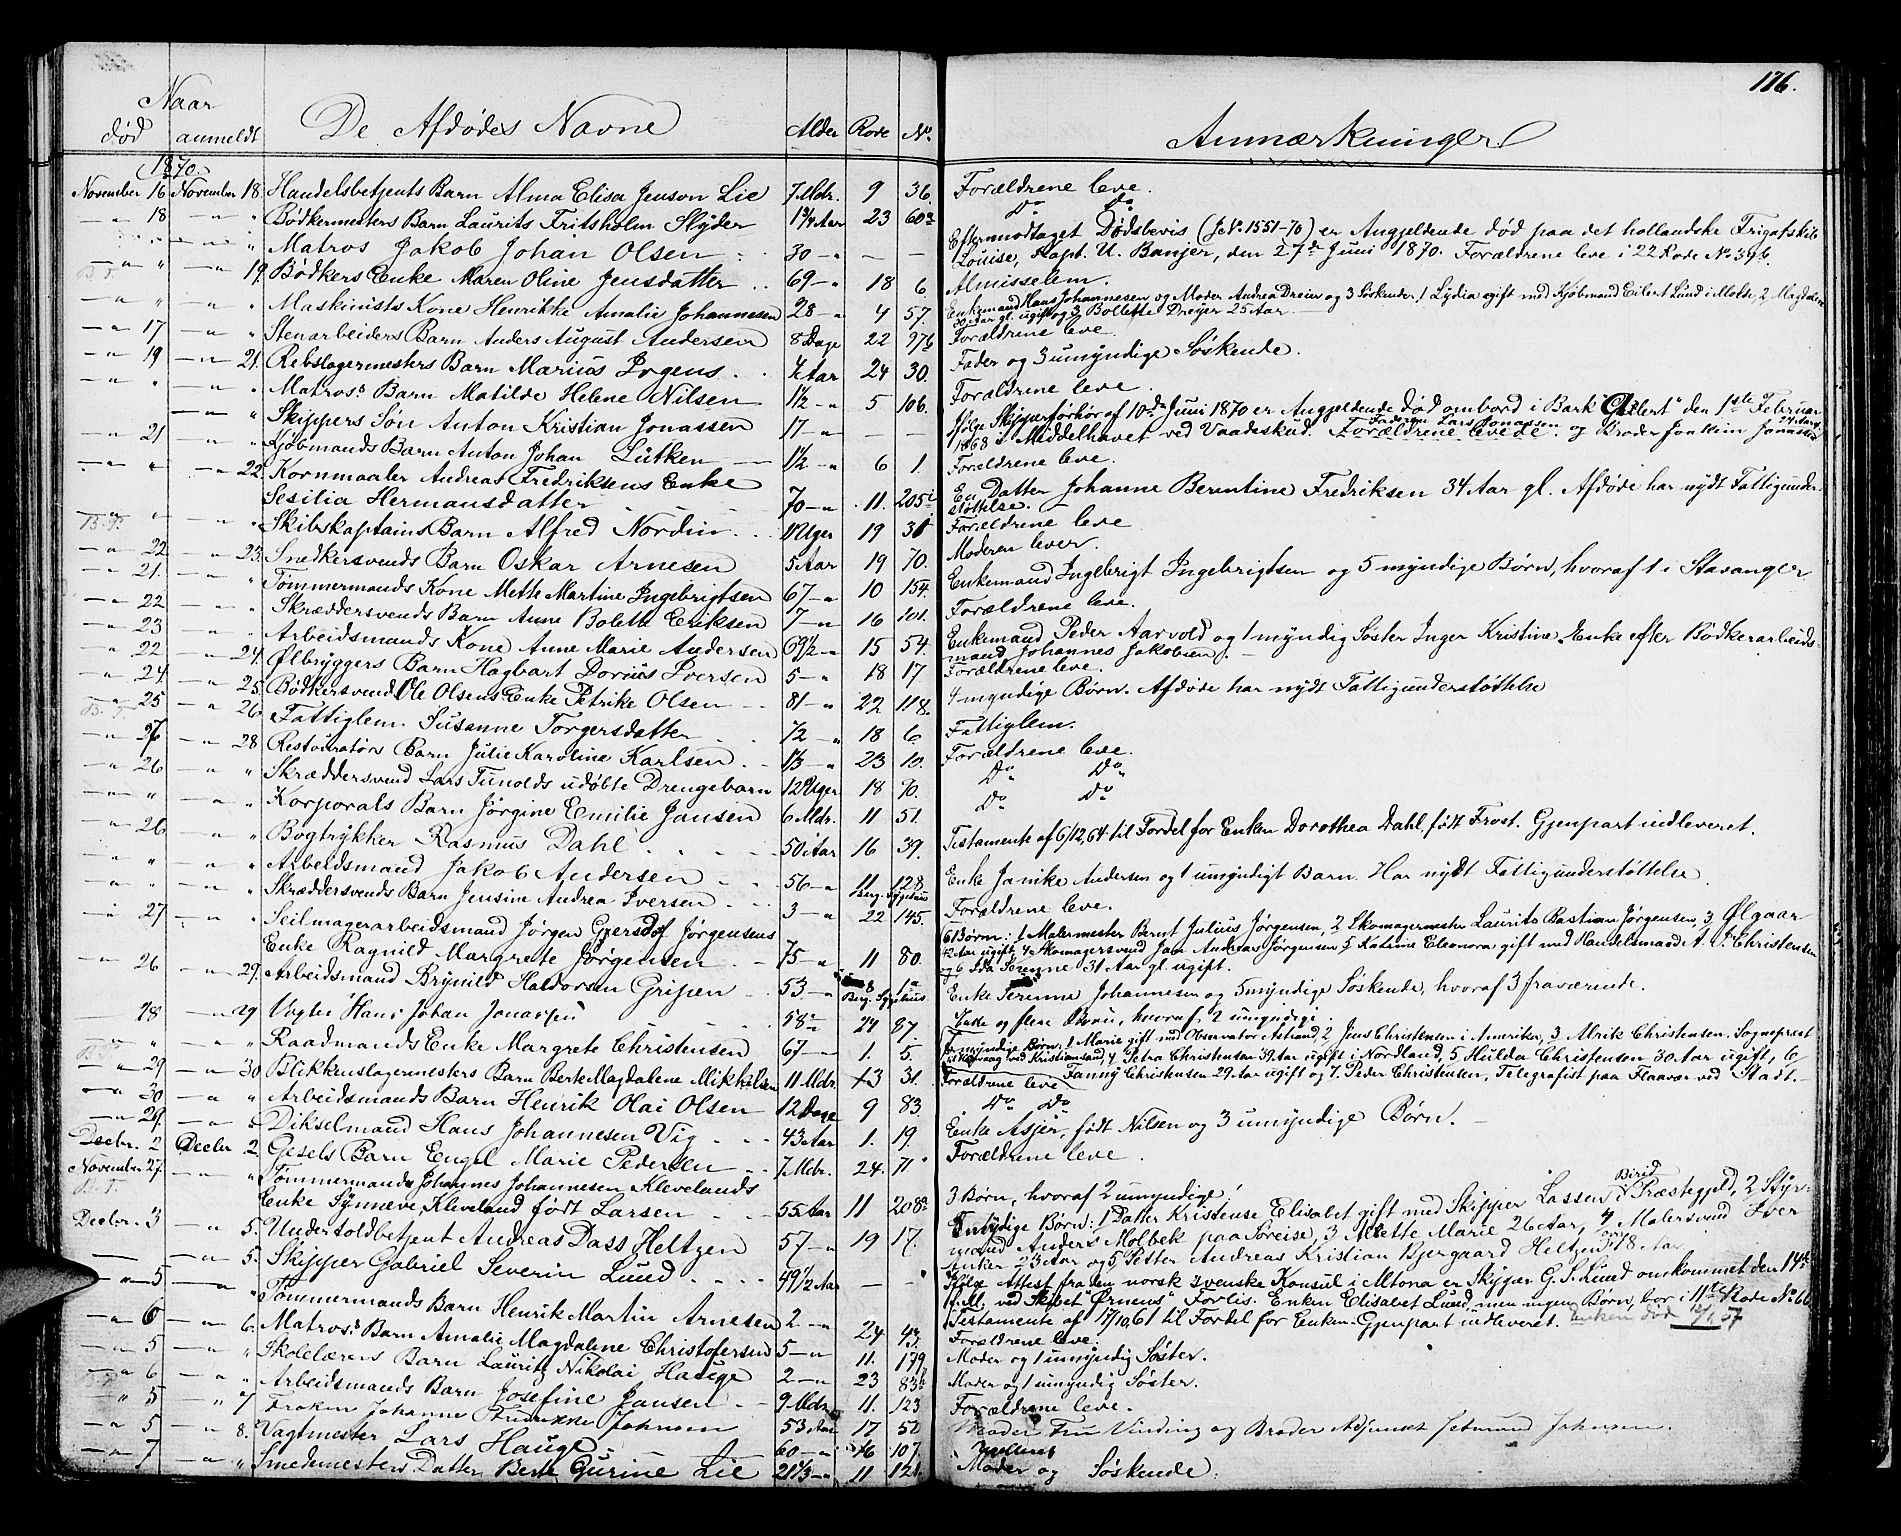 176.
Naar
død anmeldt De Afdødes Navne Alder Rode No. Anmærkninger
1870.
November 16 November 18. Handelsbetjents Barn Alma Elisa Jenson Lie 7 Mdr. 9 36. Forældrene leve.
— " 18 — " " Bødkermesters Barn Laurits Fritsholm Slyder 1 3/4 Aar 23 60a Do Do
— " — " " Matros Jakob Johan Olsen 30 — " — — Eftermodtaget Dødsbevis (J No. 1551-70) er Angjeldende død paa det hollandske Frigatskib
Louise, Kapt. U. Banjer, den 27de Juni 1870. Forældrene leve i 22 Rode No 39b.
— " " — " 19. Bødkers Enke Maren Oline Jensdatter 69 — " 18 6 Almisselem.
— " " — " " Maskinists Kone Henrikke Amalie Johannesen 28 — " 4 57. Enkemand Hans Johannesen og Moder Andrea Dreier og 3 Søskende, 1 Lydia gift med Kjøbmand Eilert Lund i Molde, 2 Magdalene
30 Aar gl. ugift og 3 Bollette Dreyer 25 Aar.
— " 17 — " " Stenarbeiders Barn Anders August Andersen 8 Dage 22 97b Forældrene leve.
— " 19 — " 21. Rebslagermesters Barn Marius Irgens 7 Aar 24 30. Fader og 3 umyndige Søskende.
— " " — " " Matros's Barn Matilde Helene Nilsen 1 1/2 — " 5 106. Forældrene leve.
— " " Skippers Søn Anton Kristian Jonassen 17 — " — — Ifølge Skipperforhør af 10de Juni 1870 er Angjeldende død ombord i Bark "Eilert" den 1ste Februar
1868 i Middelhavet ved Vaadeskud. Forældrene levede. Faderen Lars Jonassen og Broder Joakim Jonassen
— " 21 — " " Kjøbmands Barn Anton Johan Lütken 1 1/2 — " 6 1. Forældrene leve.
— " " — " 22. Kornmaaler Andreas Fredriksens Enke
Sesilia Hermansdatter 70 — " 11. 205i En Datter Johanne Berentine Fredriksen 34 Aar gl. Afdøde har nydt Fattigunder-
støttelse.
— " " — " " Skibskaptains Barn Alfred Nordin 11 Uger 19 31 Forældrene leve
— " 22 — " 23. Snedkersvends Barn Oskar Arnesen 5 Aar 19 70. Moderen lever.
— " 21. — " " Tømmermands Kone Mette Martine Ingebrigtsen 67 — " 10 154. Enkemand Ingebrigt Ingebrigtsen og 5 myndige Børn, hvoraf 1 i Stavanger
— " 22 — " " Skræddersvends Barn Anne Bolette Eriksen 7 — " 16 101. Forældrene leve.
— " 23 — " " Arbeidsmands Kone Anne Marie Andersen 69 1/2 — " 15 54. Enkemand Peder Aarvold og 1 myndig Søster Inger Kristine, Enke efter Bødkerarbeids-
mand Johannes Jakobsen.
— " 22 — " 24. Ølbryggers Barn Hagbart Dorius Iversen 5 — " 18 17 Forældrene leve.
— " 24 — " 25. Bødkersvend Ole Olsens Enke Petrike Olsen 81 — " 22 118. 4 myndige Børn. Afdøde har nydt Fattigunderstøttelse
— " 25 — " 26. Fattiglem Susanne Torgersdatter 72 — " 18 6. Fattiglem.
— " 26 — " 28. Restoratørs Barn Julie Karoline Karlsen 1 1/3 — " 23 10. Forældrene leve.
— " 26 — " " Skræddersvend Lars Tunolds udøbte Drengebarn 12 Uger 18 90. Do Do
— " " — " " Korporals Barn Jørgine Emilie Jansen 6 Mdr. 11 51. Do Do
— " 26 — " " Bogtrykker Rasmus Dahl 50 1/2 Aar 16 39. Testamente af 6/12,64 til Fordel for Enken Dorothea Dahl, født Frost. Gjenpart indleveret.
— " " — " " Arbeidsmand Jakob Andersen 56 — " 11 128 Enke Janike Andersen og 1 umyndigt Barn. Har nydt Fattigunderstøttelse.
Berg. Sygehus
— " " — " " Skræddersvends Barn Jensine Andrea Iversen 3 — " 22 145. Forældrene leve.
— " 27 — " " Seilmagerarbeidsmand Jørgen Gjersdof Jørgensens 6 Børn: 1 Malermester Bernt Julius Jørgensen, 2 Skomagermester Laurits Bastian Jørgensen, 3 Ølgaar
Enke Ragnild Margrete Jørgensen 75 — " 11 80. 42 Aar ugift, 4 Skomagersvend Jan Andreas Jørgensen, 5 Katrine Eleonora gift med Handelsmand A. J. Christensen
og 6 Ida Serenne 31 Aar gl. ugift.
— " 26 — " 29. Arbeidsmand Brynild Haldorsen Gripen 53 — " 8 1a Enke Serenne Johannesen og 5 myndige Søskende, hvoraf 3 fraværende.
Berg. Sygehus
— " 28 — " 29 Vægter Hans Johan Jonassen 58 — " 24 87. Enke og flere Børn, hvoraf 2 umyndige.
— " " — " " Raadmands Enke Margrete Christensen 67 — " 1. 5. 7 myndige Børn: 1 Marie gift med Observator Astrand, 2 Jens Christensen i Amerika, 3 Ulrik Christensen, Sogneprest
ved Kristiansand, 4 Petra Christensen 39 Aar ugift i Nordland, 5 Hulda Christensen 30 Aar ugift, 6
— " 29 — " 30 Blikkenslagermesters Barn Berte Magdalene Mikkelsen 11 Mdr. 13 31. Forældrene leve Fanny Christensen 29 Aar ugift og 7. Peder Christensen, Telegrafist paa Flaavær ved Stadt.
— " 30 — " " Arbeidsmands Barn Henrik Olai Olsen 12 Dage 9 83 Do Do
— " 29. — " " Dikselmand Hans Johannesen Vig 43 Aar 1. 19. Enke Asjer, født Nilsen og 3 umyndige Børn.
Decbr. 2 Decbr 2. Gesels Barn Engel Marie Pedersen 7 Mdr. 24. 71 Forældrene leve.
November 27. — " " Tømmermand Johannes Johannesen Klevelands
Enke Synneve Kleveland født Larsen 55 Aar 11 208a 3 Børn, hvoraf 2 umyndige.
Decbr. 3 — " 5. Undertoldbetjent Andreas Dass Heltzen 57 — " 19 17. 5 myndige Børn: 1 Datter Kristense Elisabet gift med Skipper Lassen i Birid Præstegjeld, 2 Styr-
mand Anders Molbek paa Soreise, 3 Alette Marie 26 Aar, 4 Malersvend Iver
Anker 23 Aar og 5 Petter Andreas Kristian Bjergaard Heltzen 18 Aar
— " — " 5. Skipper Gabriel Severin Lund 49 1/2 Aar — — Ifølge Attest fra den norsk svenske Konsul i Altona er Skipper G. S. Lund omkommet den 14de
f. M. ved Skibet "Ørnens" Forlis. Enken Elisabet Lund, men ingen Børn, bor i 11te Rode No 66.
Testamente af 17/10,61 til Fordel for Enken. Gjenpart indleveret. Enken død
— " 5 — " " Tømmermands Barn Henrik Martin Arnesen 2 — " 24 43. Forældrene leve.
— " 6 — " 6. Matros's Barn Amalie Magdalene Christofersen 5 — " 11. 179. Moder og 1 umyndig Søster.
— " 5 — " " Skolelærers Barn Lauritz Nikolai Hauge 2 — " 23 83b Moder og 1 umyndig Søster.
— " 6 — " " Arbeidsmands Barn Josefine Jansen 9 Mdr. 11. 123 Forældrene leve.
" 5 — " 7 Frøken Johanne Johnsen 53 Aar 17 50 Moder Fru Vinding og Broder Adjunkt Johnsen.
— " 5 — " 8. Vagtmester Lars Hauge 60 — " 16 107.
— " 7 — " " Smedemesters Datter Berte Gurine Lie 21 1/3 — " 11 121. Moder og Søskende.